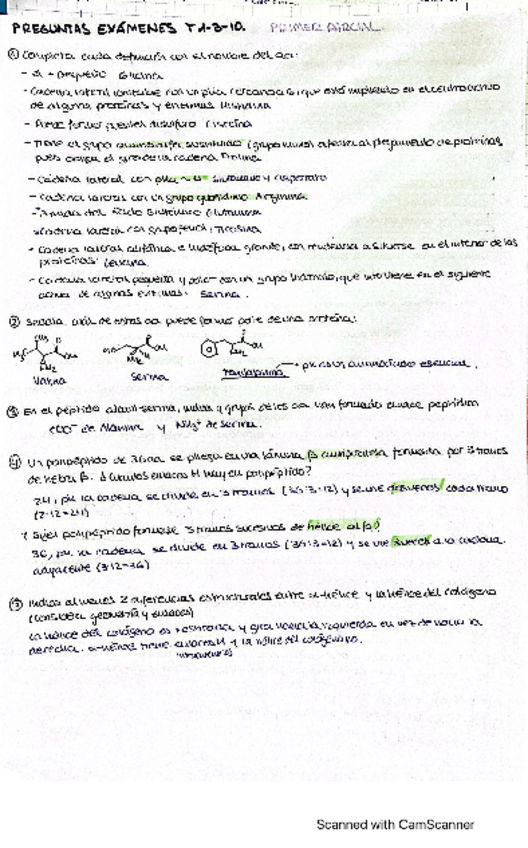 PREGUNTAS EXÁMENES T1-3-10. PRIMER PARCIAL.
① Completa cada definición con el nombre del aa:
- El + pequeño Glicina
- Cadena lateral ionizable con un pKa cercano a 6, que está implicado en el centro activo
de algunas proteínas y enzimas Histidina
- Puede formar puentes disulfuro Cisteína
- Tiene el grupo amino (grupo imino) al plegamiento de proteínas,
pues el giro de la cadena Prolina
- Cadena lateral con pKa Glutamato y aspartato
- Cadena lateral con un grupo guanidinio Arginina
- Amida del ácido glutámico Glutamina
- Cadena lateral con grupo fenol: Tirosina
- Cadena lateral alifática e hidrófoba grande, con tendencia a situarse en el interior de las
proteínas: Leucina.
- Cadena lateral pequeña y polar con un grupo hidroxilo, que interviene en el siguiente
activo de algunas enzimas: Serina.
② Señala cuál de estos aa puede formar parte de una proteína:
CH3 O
H3C OH
NH2
OH
NH2
O
OH
NH2
Valina Serina Fenilalanina → pk es un aminoácido esencial.
③ En el péptido alanil-serina, indica q grupos de los aa han formado el enlace peptídico
COO⁻ de Alanina y NH3⁺ de serina.
④ Un polipéptido de 36 aa se pliega en una lámina β antiparalela formada por 3 tramos
de hebra β. ¿Cuántos enlaces H hay en el polipéptido?
24, pk la cadena se divide en 3 tramos (36:3=12) y se une cada tramo
(2·12=24)
Y si el polipéptido formase 3 tramos sucesivos de hélice alfa?
36, pk la cadena se divide en 3 tramos (36:3=12) y se une a la cadena
adyacente (3·12=36)
⑤ Indica al menos 2 diferencias estructurales entre α-hélice y la hélice del colágeno
(considera geometría y enlaces)
La hélice del colágeno es + estirada y gira hacia la izquierda en vez de hacia la
derecha. α-hélice tiene enlaces H y la hélice del colágeno no.
intracatenarios
Scanned with CamScanner